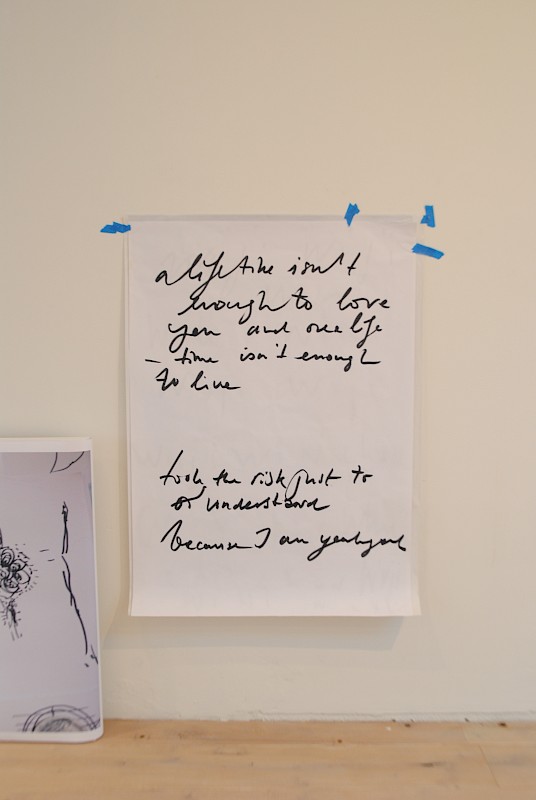 a lifetime isn't
enough to love
you and one life
– time isn't enough
to live
took the risk just to
understand
because I am